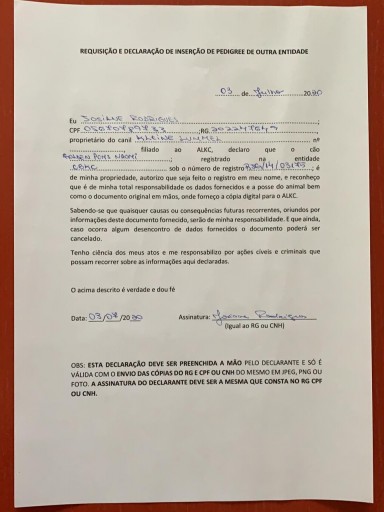 REQUISIÇÃO E DECLARAÇÃO DE INSERÇÃO DE PEDIGREE DE OUTRA ENTIDADE
03 de Julho 2020
Eu JOSIANE RODRIGUES
CPF ;RG
proprietário do canil KLEINE HIMMEL nº
, filiado ao ALKC, declaro que o cão
; registrado na entidade
CBKC sob o número de registro ; é
de minha propriedade, autorizo que seja feito o registro em meu nome, e reconheço
que é de minha total responsabilidade os dados fornecidos e a posse do animal bem
como o documento original em mãos, onde forneço a cópia digital para o ALKC.
Sabendo-se que quaisquer causas ou consequências futuras recorrentes, oriundos por
informações deste documento fornecido, serão de minha responsabilidade. E que ainda,
caso ocorra algum desencontro de dados fornecidos o documento poderá ser
cancelado.
Tenho ciência dos meus atos e me responsabilizo por ações cíveis e criminais que
possam recorrer sobre as informações aqui declaradas.
O acima descrito é verdade e dou fé
Data: 03/07/2020 Assinatura: Josiane Rodrigues
(Igual ao RG ou CNH)
OBS: ESTA DECLARAÇÃO DEVE SER PREENCHIDA A MÃO PELO DECLARANTE E SÓ É
VÁLIDA COM O ENVIO DAS CÓPIAS DO RG E CPF OU CNH DO MESMO EM JPEG, PNG OU
FOTO. A ASSINATURA DO DECLARANTE DEVE SER A MESMA QUE CONSTA NO RG CPF
OU CNH.